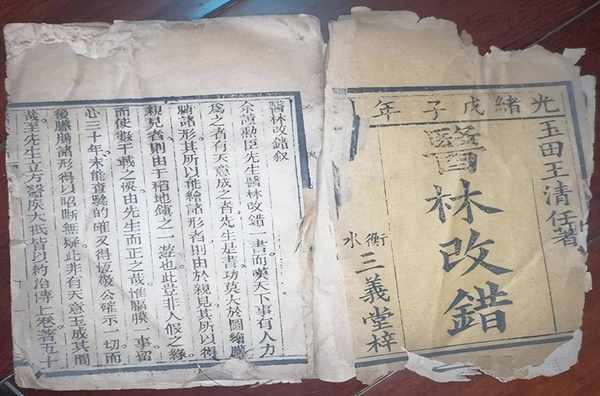 光緒戊子年
玉田王清任著
醫林改錯
衡水
三義堂梓
醫林改錯叙
余讀勳臣先生醫林改錯一書而嘆天下事有人力
為之者有天意成之者先生是書功莫大於圖繪臟
腑諸形其所以能繪諸形者則由於親見其所以得
親見者則由于稻地鎮之一遊也此豈非天假之緣
而使數千載之悞由先生而正之哉惟膈膜一事留
心三十年未能查驗的確又得恆敬公確示一切而
後臟腑諸形得以昭晰無疑此非有天意玉成其間
哉至先生立方醫疾大抵皆以約治博上卷著五十